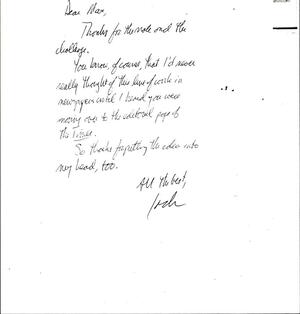 Dear Max,
Thanks for the note and the
challenge.
You know, of course, that I'd never
really thought of this line of work in
newspapers until I heard you were
moving over to the editorial page of
the
So thanks for putting the idea into
my head, too.
All the best,